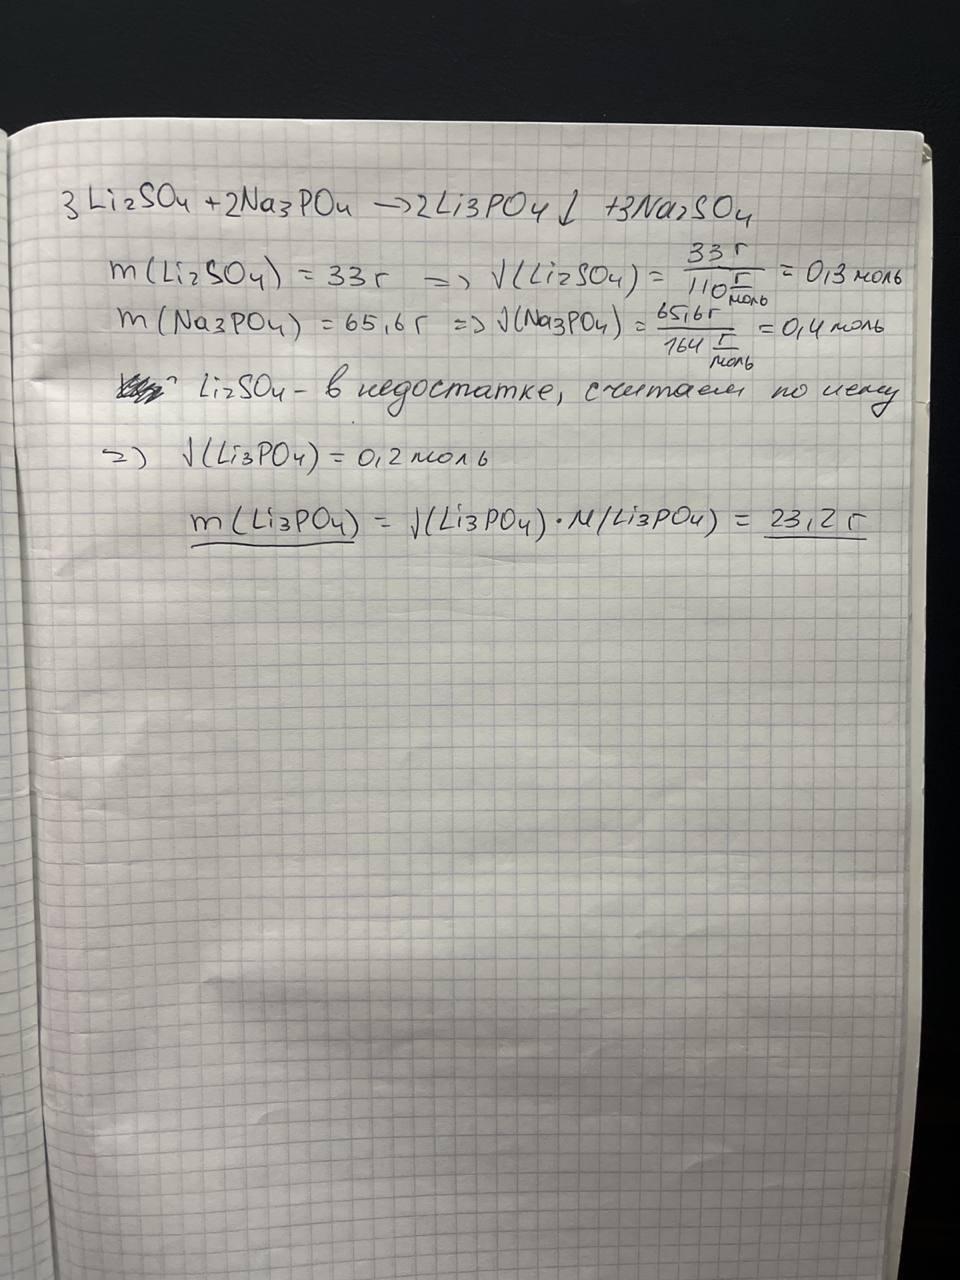 3Li₂SO₄ + 2Na₃PO₄ → 2Li₃PO₄↓ + 3Na₂SO₄
m(Li₂SO₄) = 33 г => √(Li₂SO₄) = 33 г / 110 г/моль = 0,3 моль
m(Na₃PO₄) = 65,6 г => √(Na₃PO₄) = 65,6 г / 164 г/моль = 0,4 моль
Li₂SO₄ - в недостатке, считаем по нему
=> √(Li₃PO₄) = 0,2 моль
m(Li₃PO₄) = √(Li₃PO₄) · M(Li₃PO₄) = 23,2 г